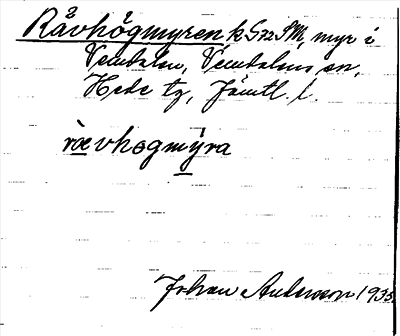 Råvhögmyren k G72 SM, myr i
Vemdalen, Vemdalens sn,
Hede tg, Jämtl. l.
ràevhogmỳra
Johan Anderson 1935